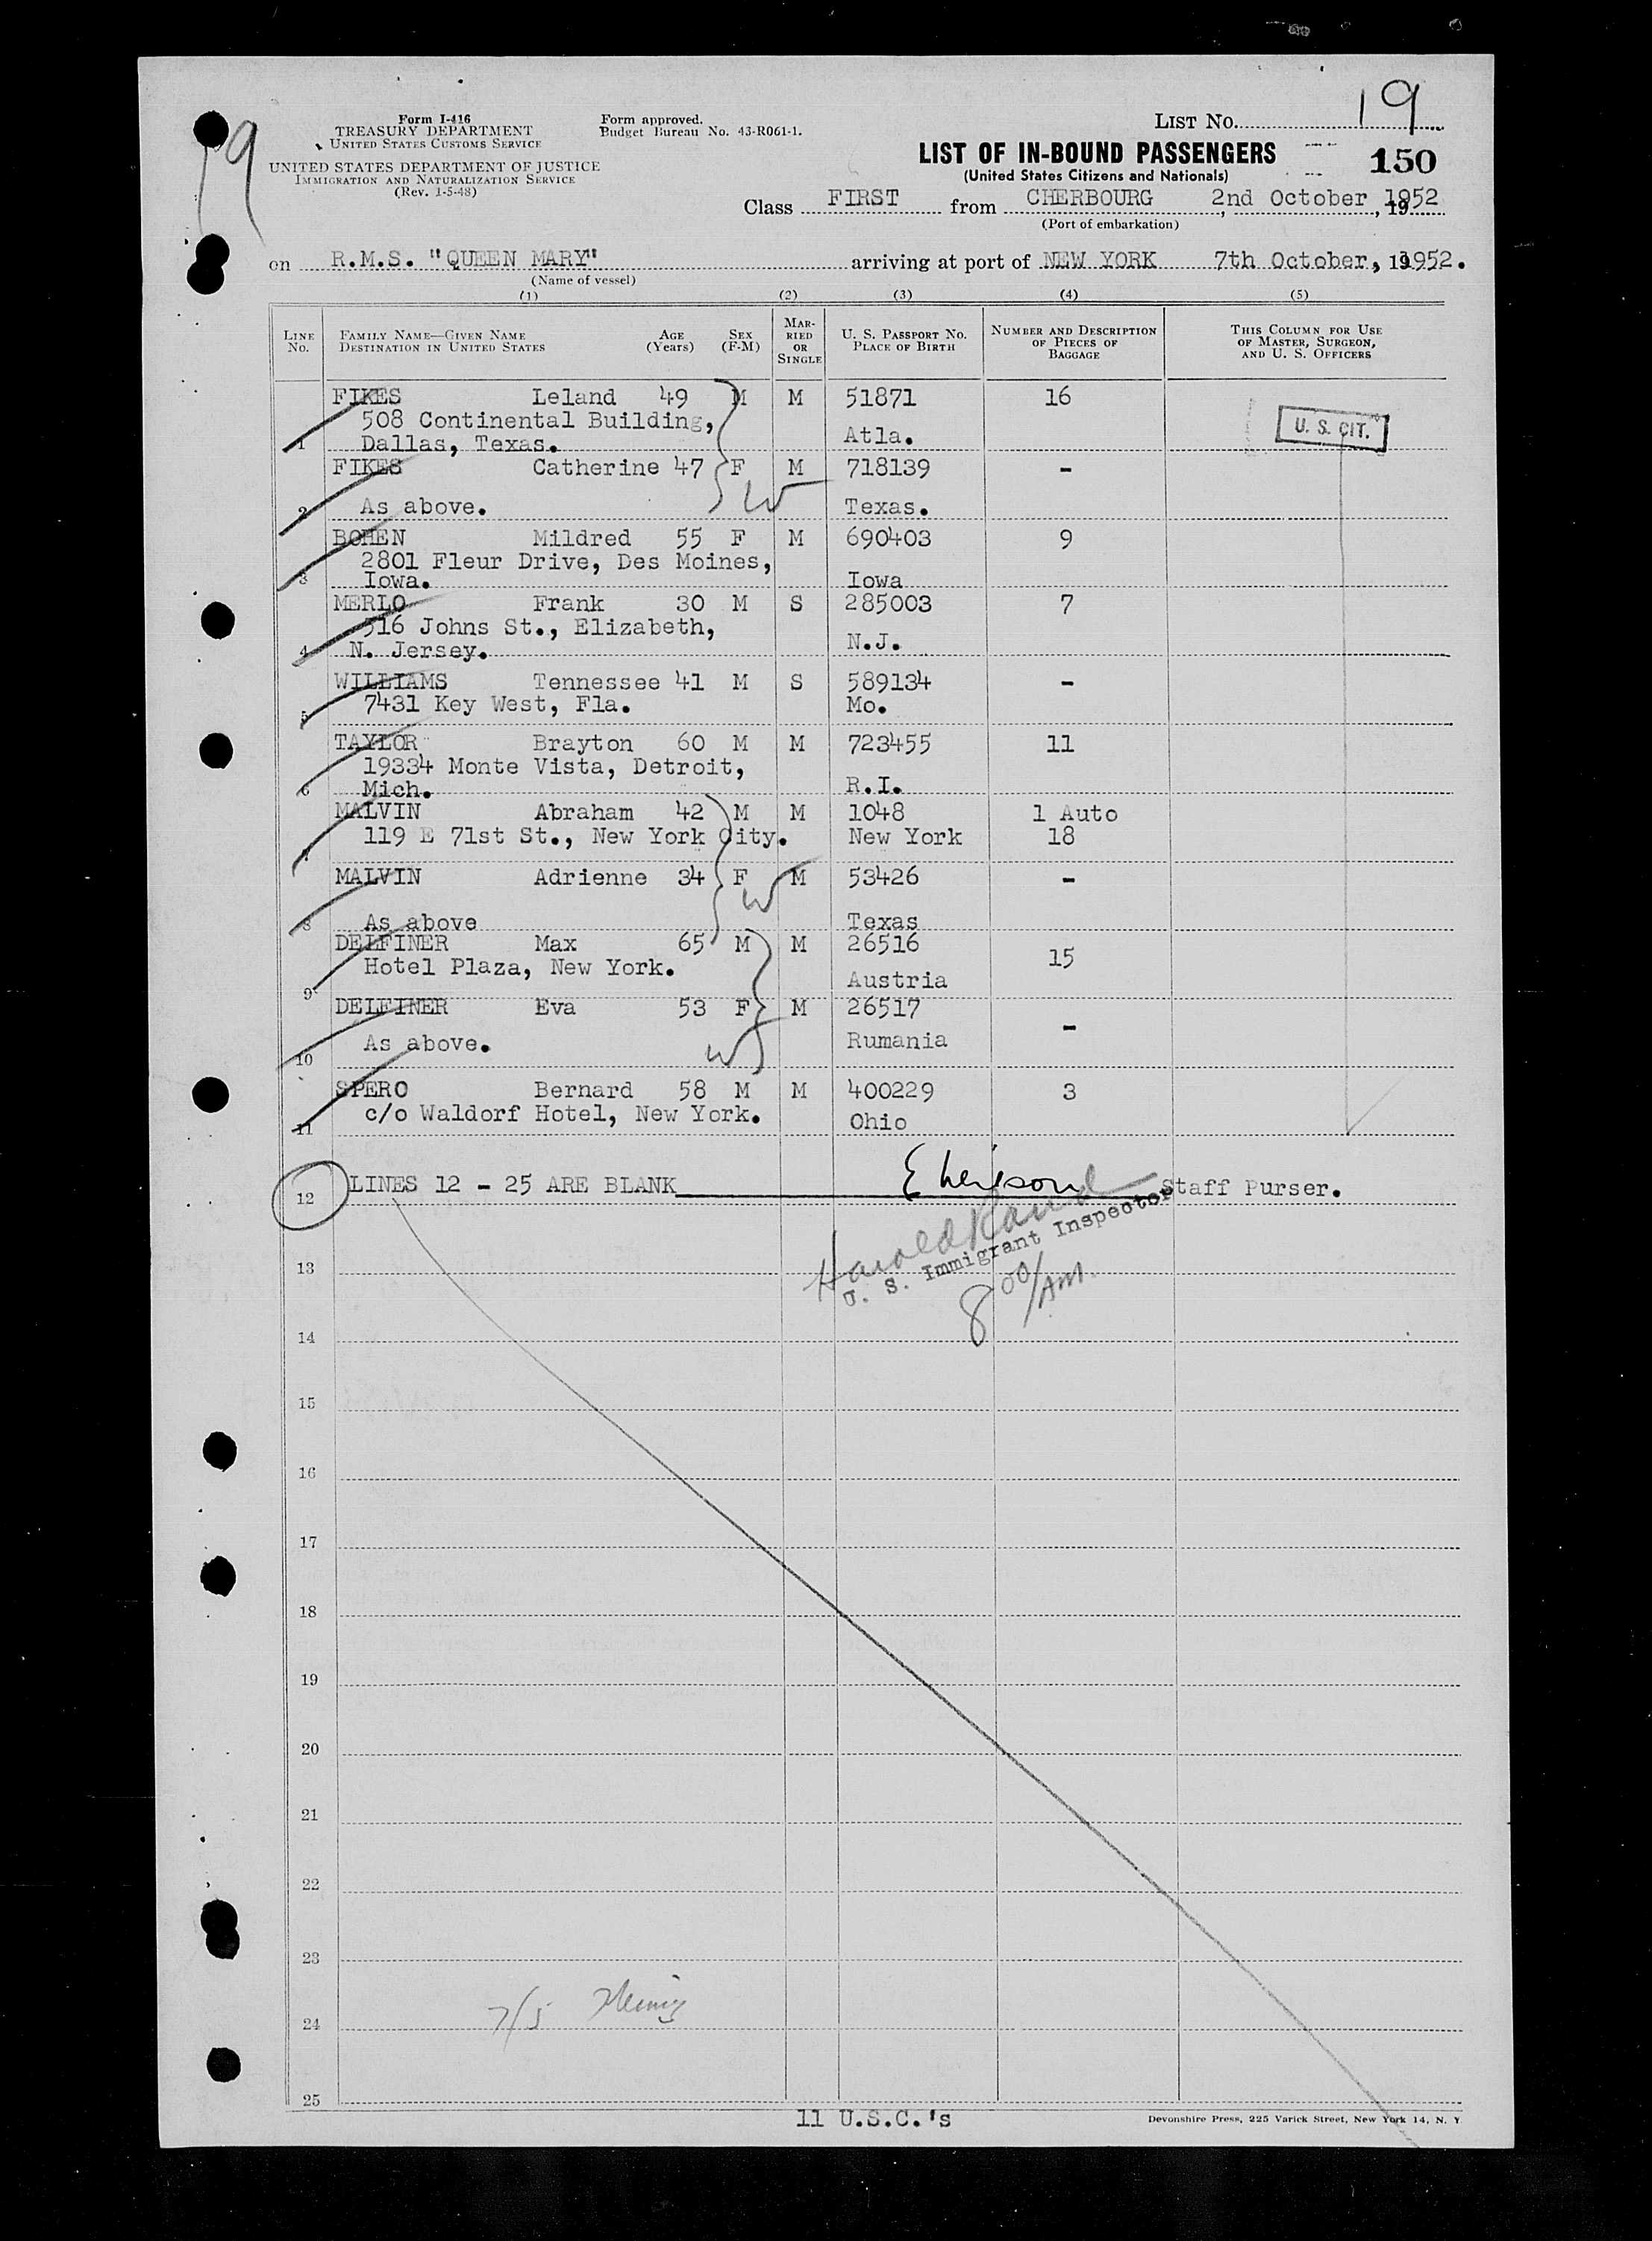 19
Form I-416
TREASURY DEPARTMENT
UNITED STATES CUSTOMS SERVICE
UNITED STATES DEPARTMENT OF JUSTICE
IMMIGRATION AND NATURALIZATION SERVICE
(Rev. 1-5-48)
Form approved.
Budget Bureau No. 43-R061-1.
LIST NO. 19
LIST OF IN-BOUND PASSENGERS
150
(United States Citizens and Nationals)
Class FIRST from CHERBOURG, 2nd October, 1952
(Port of embarkation)
on R.M.S. "QUEEN MARY" arriving at port of NEW YORK 7th October, 1952.
(Name of vessel)
(1) (2) (3) (4) (5)
LINE NO. FAMILY NAME—GIVEN NAME DESTINATION IN UNITED STATES AGE (Years) SEX (F-M) MARRIED OR SINGLE U. S. PASSPORT NO. PLACE OF BIRTH NUMBER AND DESCRIPTION OF PIECES OF BAGGAGE THIS COLUMN FOR USE OF MASTER, SURGEON, AND U. S. OFFICERS
FIKES Leland 49 M M 51871 16
508 Continental Building,
U. S. CIT.
1 Dallas, Texas. Atla.
FIKES Catherine 47 F M 718139 -
W
2 As above. Texas.
BOHEN Mildred 55 F M 690403 9
2801 Fleur Drive, Des Moines,
3 Iowa. Iowa
MERLO Frank 30 M S 285003 7
516 Johns St., Elizabeth,
4 N. Jersey. N.J.
WILLIAMS Tennessee 41 M S 589134 -
5 7431 Key West, Fla. Mo.
TAYLOR Brayton 60 M M 723455 11
19334 Monte Vista, Detroit,
6 Mich. R.I.
MALVIN Abraham 42 M M 1048 1 Auto
7 119 E 71st St., New York City. New York 18
MALVIN Adrienne 34 F M 53426 -
W
8 As above Texas
DELFINER Max 65 M M 26516 15
9 Hotel Plaza, New York. Austria
DELFINER Eva 53 F M 26517 -
10 As above. W Rumania
SPERO Bernard 58 M M 400229 3
11 c/o Waldorf Hotel, New York. Ohio
12 LINES 12 - 25 ARE BLANK Staff Purser.
Harold Rand
U. S. Immigrant Inspector
8 00/AM.
13
14
15
16
17
18
19
20
21
22
23
24 7/5
25
11 U.S.C.'s
Devonshire Press, 225 Varick Street, New York 14, N. Y